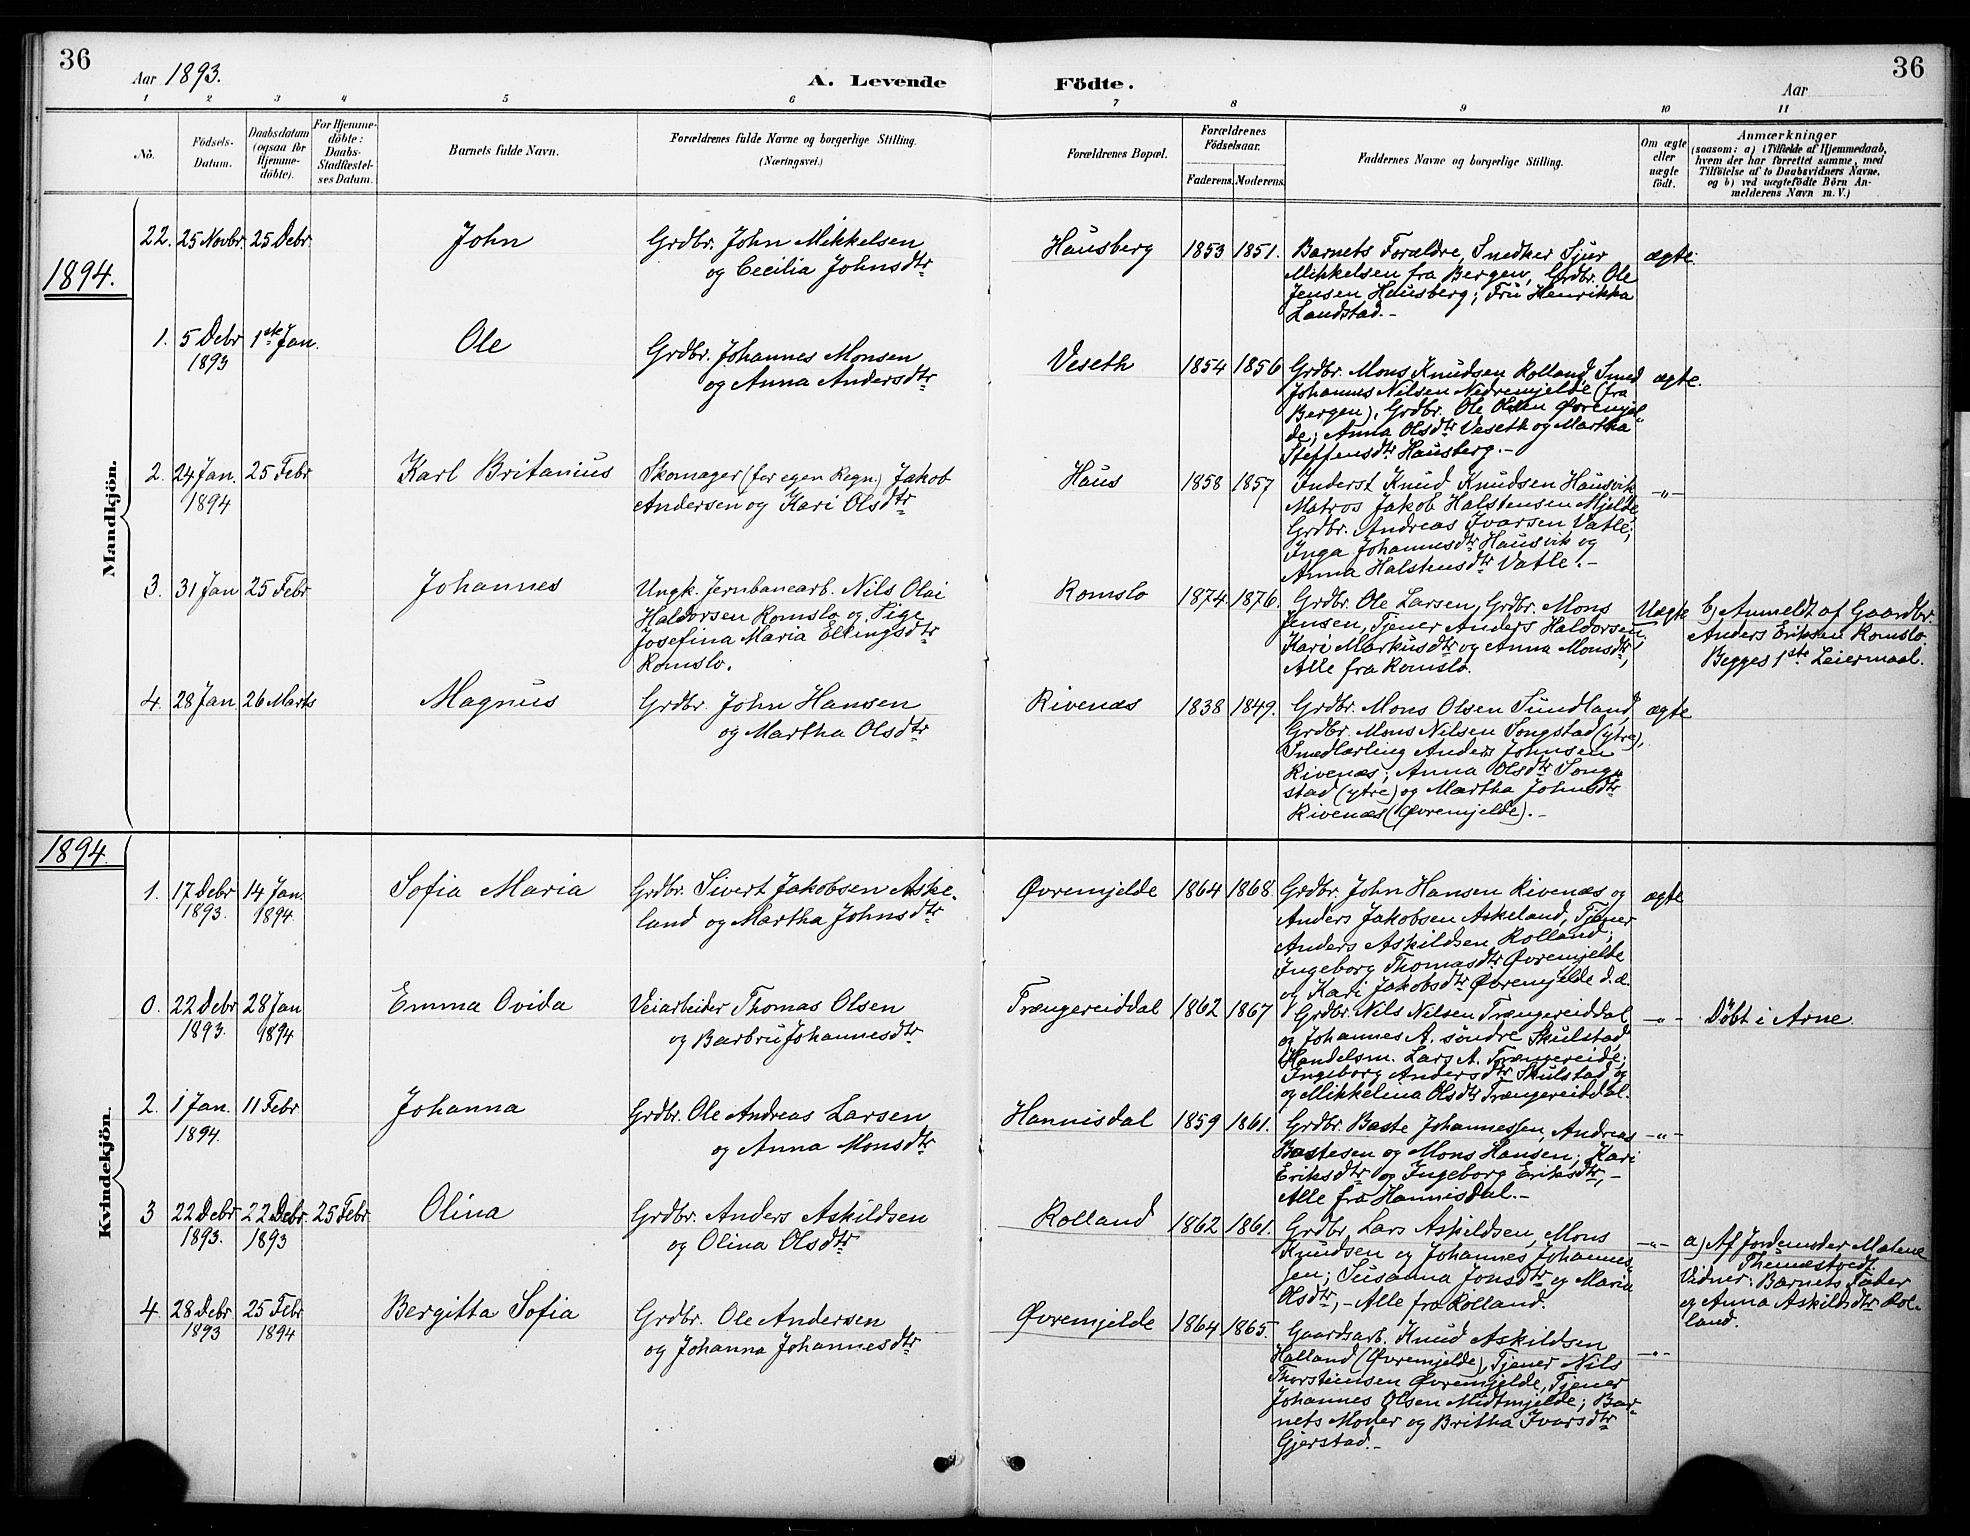 36
Aar 1893.
A. Levende
Födte.
Aar
36
1 2 3 4 5 6 7 8 9 10 11
No.
Födsels-
Datum.
Daabsdatum
(ogsaa for
Hjemme-
döbte).
For Hjemme-
döbte:
Daabs-
Stadfæstel-
ses Datum.
Barnets fulde Navn.
Forældrenes fulde Navne og borgerlige Stilling.
(Næringsvei.)
Forældrenes Bopæl.
Forældrenes
Födselsaar.
Faderens. Moderens.
Faddernes Navne og borgerlige Stilling.
Om ægte
eller
uægte
födt.
Anmærkninger
(saasom: a) i Tilfælde af Hjemmedaab,
hvem der har forrettet samme, med
Tilföielse af to Daabsvidners Navne,
og b) ved uægtefödte Börn An-
melderens Navn m. V.)
Mandkjön.
22. 25 Novbr. 25 Debr. John
Grdbr. John Mikkelsen
og Cecilia Johnsdtr
Hausberg 1853 1851.
Barnets Foraldre, Snedker Sjur
Mikkelsen fra Bergen, Grdbr. Ole
Jensen Hausberg; Fru Henrikka
Landstad.-
ægte.
1894.
1. 5 Debr 1ste Jan. Ole
1893
Grdbr. Johannes Monsen
og Anna Andersdtr
Veseth 1854 1856
Grdbr. Mons Knudsen Rolland, Smed
Johannes Nilsen Nedremjelde (fra
Bergen), Grdbr. Ole Olsen Øvremjel-
de; Anna Olsdtr Veseth og Martha
Steffensdtr Hausberg.-
ægte.
2. 24 Jan. 25 Febr Karl Britanius
1894
Skomager (for egen Regn.) Jakob
Andersen og Kari Olsdtr
Haus 1858 1857
Inderst Knud Knudsen Hausvik
Matros Jakob Halstensen Mjelde,
Grdbr. Andreas Ivarsen Vatle,
Inga Johannesdtr Hausvik og
Anna Halstensdtr Vatle.-
-"-
3. 31 Jan 25 Febr Johannes
Ungk. Jernbanearb. Nils Olai
Haldorsen Romslo og Pige
Josefina Maria Ellingsdtr
Romslo.
Romslo 1874 1876.
Grdbr. Ole Larsen, Grdbr. Mons
Jensen, Tjener Anders Haldorsen,
Kari Markusdtr og Anna Monsdtr,
Alle fra Romslo.
Uægte
b) Anmeldt af Gaardbr.
Anders Eriksen Romslo
Begges 1ste Leiermaal.
4. 28 Jan 26 Marts Magnus
Grdbr. John Hansen
og Martha Olsdtr
Rivenæs 1838 1849.
Grdbr. Mons Olsen Sundland,
Grdbr. Mons Nilsen Songstad (ytre),
Smedlærling Anders Johnsen
Rivenæs; Anna Olsdtr Song-
stad (ytre) og Martha Johnsdtr
Rivenæs (Øvremjelde).-
ægte
1894.
Kvindekjön.
1. 17 Debr 14 Jan. Sofia Maria
1893. 1894
Grdbr. Sivert Jakobsen Aske-
land og Martha Johnsdtr
Øvremjelde 1864 1868.
Grdbr. John Hansen Rivenæs og
Anders Jakobsen Askeland, Tjener
Anders Askildsen Rolland;
Ingeborg Thomasdtr Øvremjelde
og Kari Jakobsdtr Øvremjelde d.æ.
ægte
0. 22 Debr 28 Jan Emma Ovida
1893. 1894
Veiarbeider Thomas Olsen
og Barbru Johannesdtr
Trængereiddal 1862 1867
Grdbr. Nils Nilsen Trængereiddal
og Johannes A. søndre Skulstad,
Handelsm. Lars A. Trængereide;
Ingeborg Andersdtr Skulstad og
og Mikkelina Olsdtr Trængereiddal.
-"-
Døbt i Arne.
2. 1 Jan. 11 Febr Johanna
1894.
Grdbr. Ole Andreas Larsen
og Anna Monsdtr
Hannisdal 1859 1861.
Grdbr. Baste Johannessen, Andreas
Bastesen og Mons Hansen; Kari
Eriksdtr og Ingeborg Eriksdtr,-
Alle fra Hannisdal.-
-"-
3 22 Debr 22 Debr. 25 Febr. Olina
1893. 1893
Grdbr. Anders Askildsen
og Olina Olsdtr
Rolland 1862 1861.
Grdbr. Lars Askildsen, Mons
Knudsen og Johannes Johannes-
sen; Susanna Jonsdtr og Maria
Olsdtr,- Alle fra Rolland.
-"-
a) Af Jordemoder Malene
Vidner: Barnets Fader
og Anna Askildsdtr Rol-
land.
4. 28 Debr 25 Febr Bergitta Sofia
1893 1894
Grdbr. Ole Andersen
og Johanna Johannesdtr
Øvremjelde 1864 1865.
Gaardsarb. Knud Askildsen
Halland (Øvremjelde), Tjener Nils
Thorsteinsen Øvremjelde, Tjener
Johannes Olsen Midtmjelde; Bar-
nets Moder og Britha Ivarsdtr
Gjerstad.-
-"-